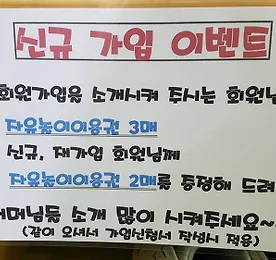 신규 가입 이벤트
회원가입을 소개시켜 주시는 회원님
자유놀이이용권 3매
신규, 재가입 회원님께
자유놀이이용권 2매를 증정해 드려
어머님들 소개 많이 시켜주세요~
(같이 오셔서 가입신청서 작성시 적용)